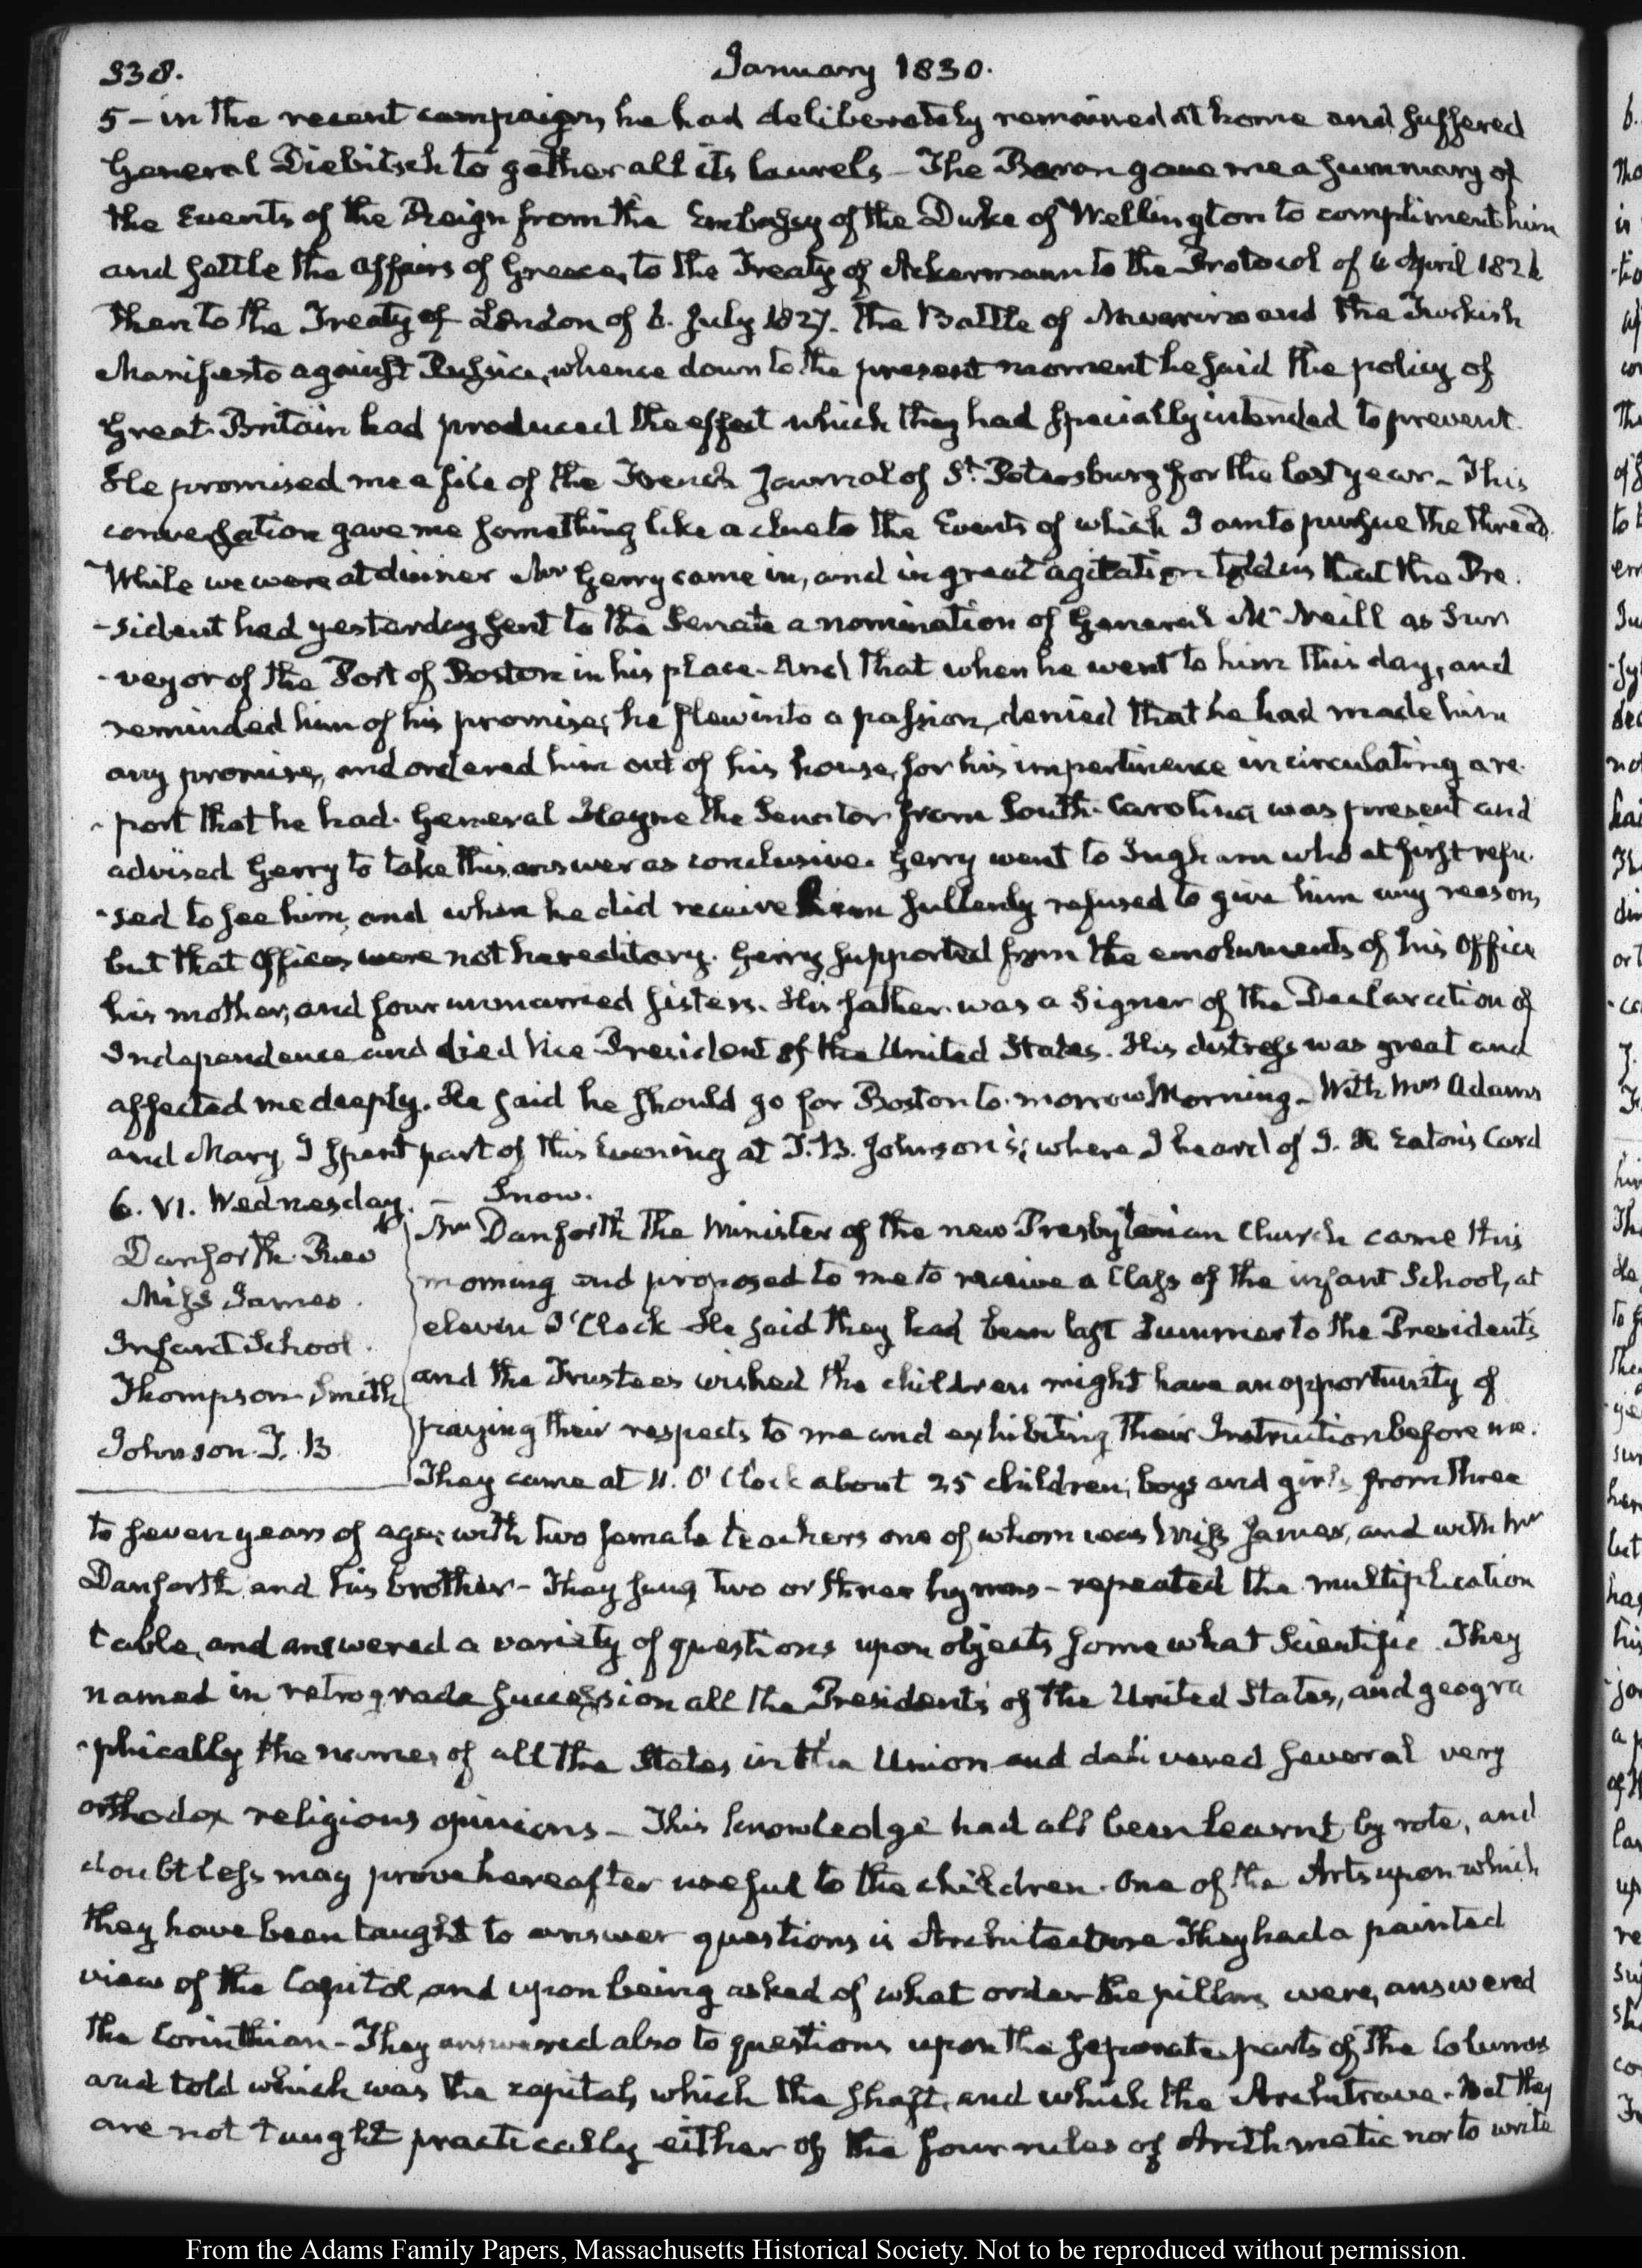 338.
January 1830.
5 – in the recent campaign, he had deliberately remained at home and suffered
General Diebitsch to gather all its laurels – The Baron gave me a summary of
the Events of the Reign from the Embassy of the Duke of Wellington to compliment him
and settle the affairs of Greece, to the Treaty of Ackermann to the Protocol of 4 April 1826
then to the Treaty of London of 6. July 1827. the Battle of Navarino and the Turkish
Manifesto against Russia, whence down to the present moment he said the policy of
Great-Britain had produced the effect which they had specially intended to prevent.
He promised me a file of the French Journal of St. Petersburg for the last year – This
conversation gave me something like a clue to the Events of which I am to pursue the thread.
While we were at dinner Mr Gerry came in, and in great agitation told us that the Pre
-sident had yesterday sent to the Senate a nomination of General McNeill as Sur
-veyor of the Port of Boston in his place. And that when he went to him this day, and
reminded him of his promise, he flew into a passion, denied that he had made him
any promise, and ordered him out of his house, for his impertinence in circulating a re
-port that he had. General Hayne the Senator from South-Carolina was present and
advised Gerry to take this answer as conclusive. Gerry went to Ingham who at first refu
-sed to see him, and when he did receive him sullenly refused to give him any reason,
but that Offices were not hereditary. Gerry supported from the emoluments of his Office
his mother, and four unmarried sisters. His father was a Signer of the Declaration of
Independence and died Vice-President of the United States. His distress was great and
affected me deeply. He said he should go for Boston to-morrow Morning – With Mrs Adams
and Mary I spent part of this Evening at T. B. Johnson's; where I heard of J. H. Eaton's Card
6. VI. Wednesday. – Snow.
Danforth Revd
Miss James.
Infant School.
Thompson Smith
Johnson T. B
Mr Danforth the Minister of the new Presbyterian Church came this
morning and proposed to me to receive a Class of the infant School, at
eleven O'Clock He said they had been last Summer to the President's
and the Trustees wished the children might have an opportunity of
paying their respects to me and exhibiting their Instruction before me.
They came at 11. O'Clock about 25 children, boys and girls from three
to seven years of age; with two female teachers one of whom was Miss James, and with Mr
Danforth and his brother – They sung two or three hymns – repeated the multiplication
table, and answered a variety of questions upon objects somewhat Scientific They
named in retrograde succession all the Presidents of the United States, and geogra
-phically the names of all the States in the Union and delivered several very
orthodox religious opinions – This knowledge had all been learnt by rote, and
doubtless may prove hereafter useful to the children. One of the Arts upon which
they have been taught to answer questions is Architecture They had a painted
view of the Capitol, and upon being asked of what order the pillars were, answered
the Corinthian – They answered also to questions upon the separate parts of the Columns
and told which was the capital, which the shaft, and which the Architrave. But they
are not taught practically either of the four rules of Arithmetic nor to write
From the Adams Family Papers, Massachusetts Historical Society. Not to be reproduced without permission.